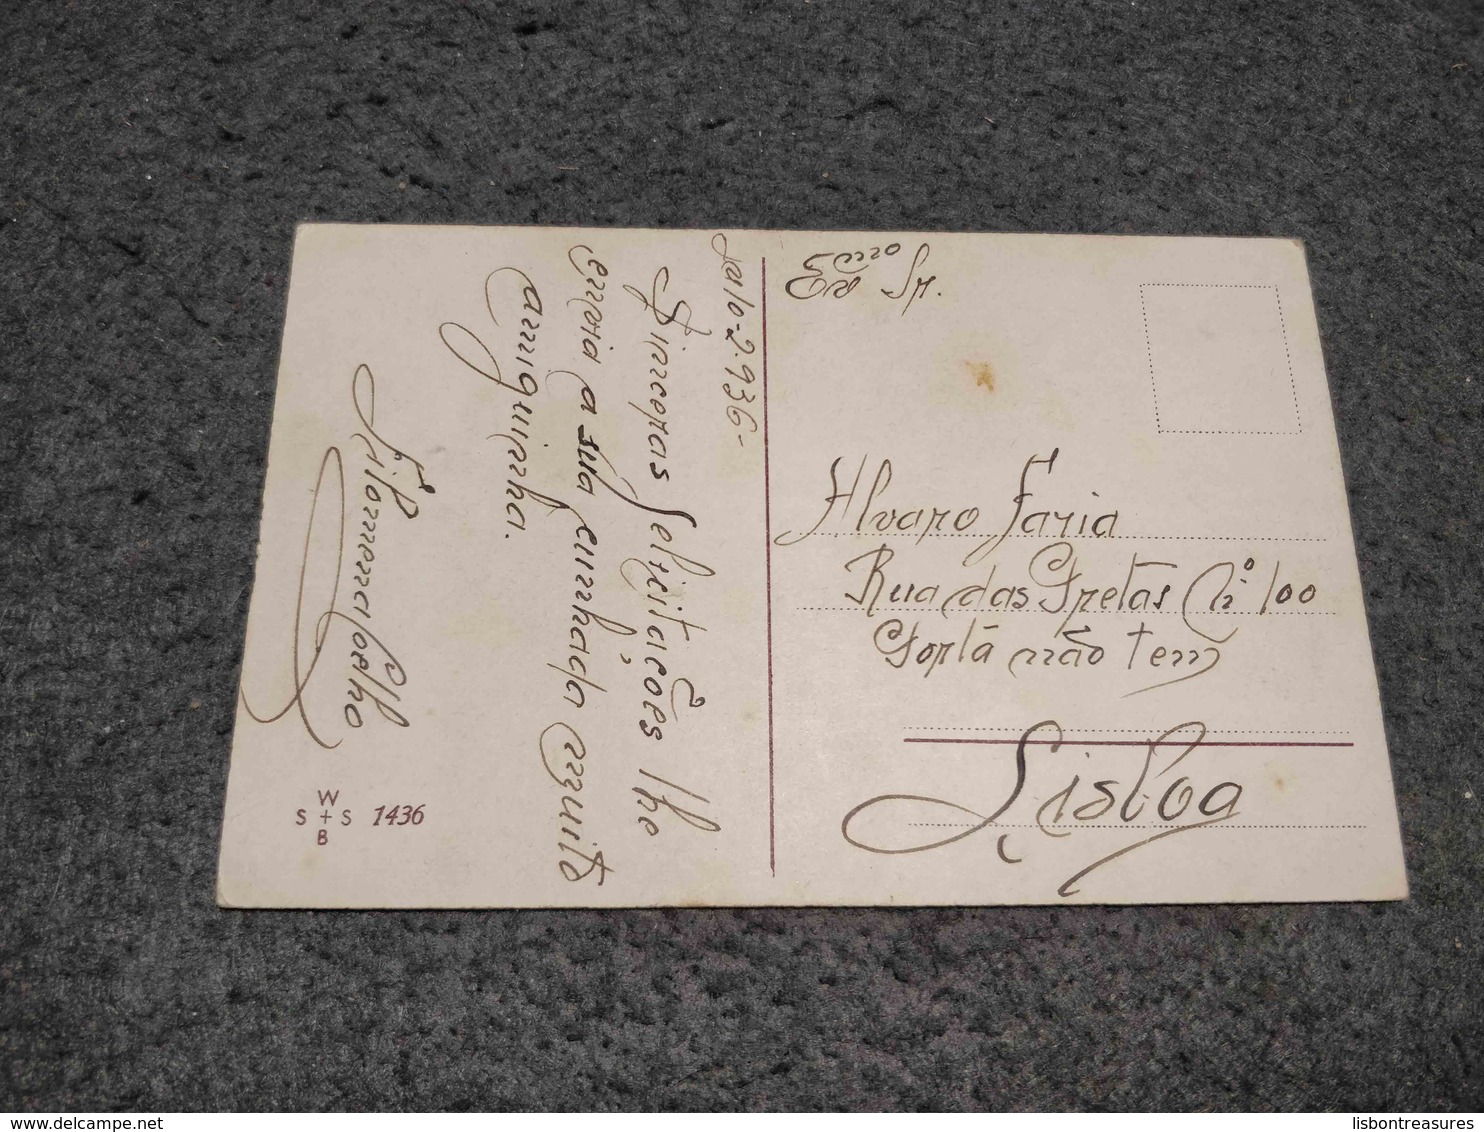 -2-936-
Sinceras felicitações lhe
envia a sua cunhada muito
amiguinha.
Filomena Coelho
W
S + S 1436
B
Exmo Sr.
Alvaro Faria
Rua das Pretas Nº 100
Porta não tem
Lisboa
delcampe.net
lisbontreasures